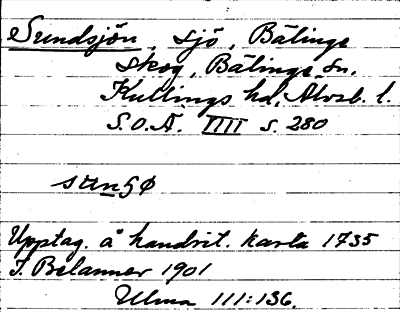 Sundsjön, sjö, Bälinge
skog, Bälinge sn.
Kullings hd, Älvsb. l.
S.O.Ä. IIII s. 280
Upptag. å handrit. karta 1735
1901
Ulma 111:136.